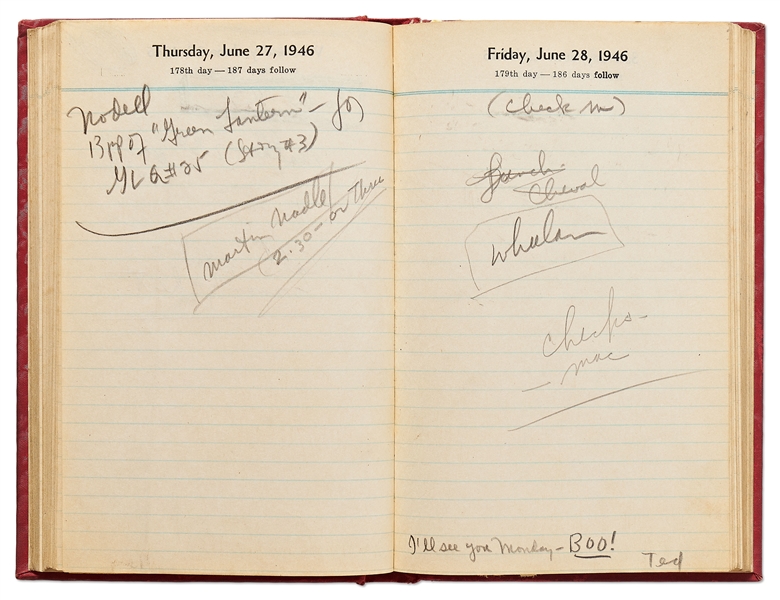 Thursday, June 27, 1946
178th day — 187 days follow
Nodell
13 pp of "Green Lantern" — for
GL Q#25 (Story #3)
Martin Nadle
(2:30 - or Three
Friday, June 28, 1946
179th day — 186 days follow
(Check in)
Lunch
Cheval
Whelan
Checks -
- mac
I'll see you Monday - BOO!
Ted